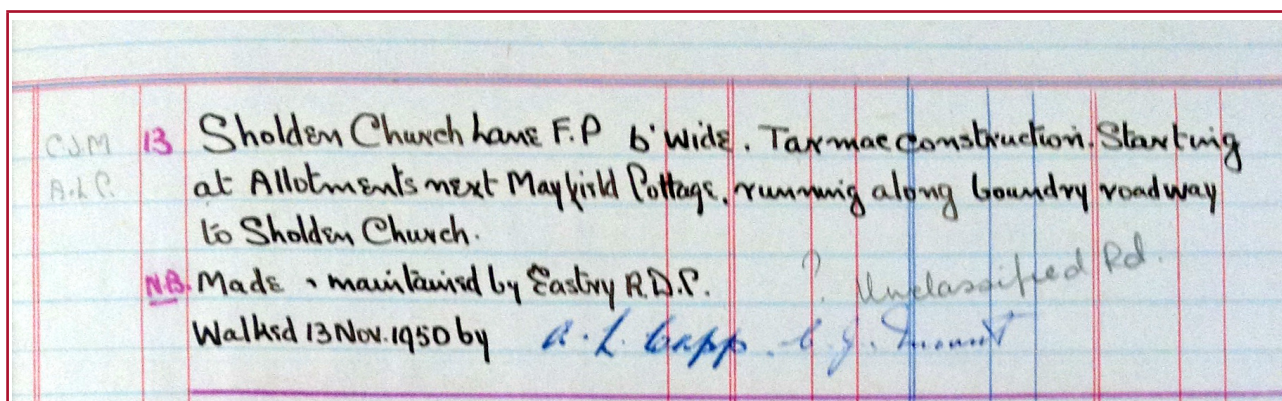 C.J.M 13 Sholden Church Lane F.P 6' wide. Tarmac construction. Starting
A.L.C. at Allotments next Mayfield Cottage, running along boundry roadway
to Sholden Church.
N.B. Made & maintained by Eastry R.D.C.
? Unclassified Rd.
Walked 13 Nov. 1950 by A. L. Capp. C. J.